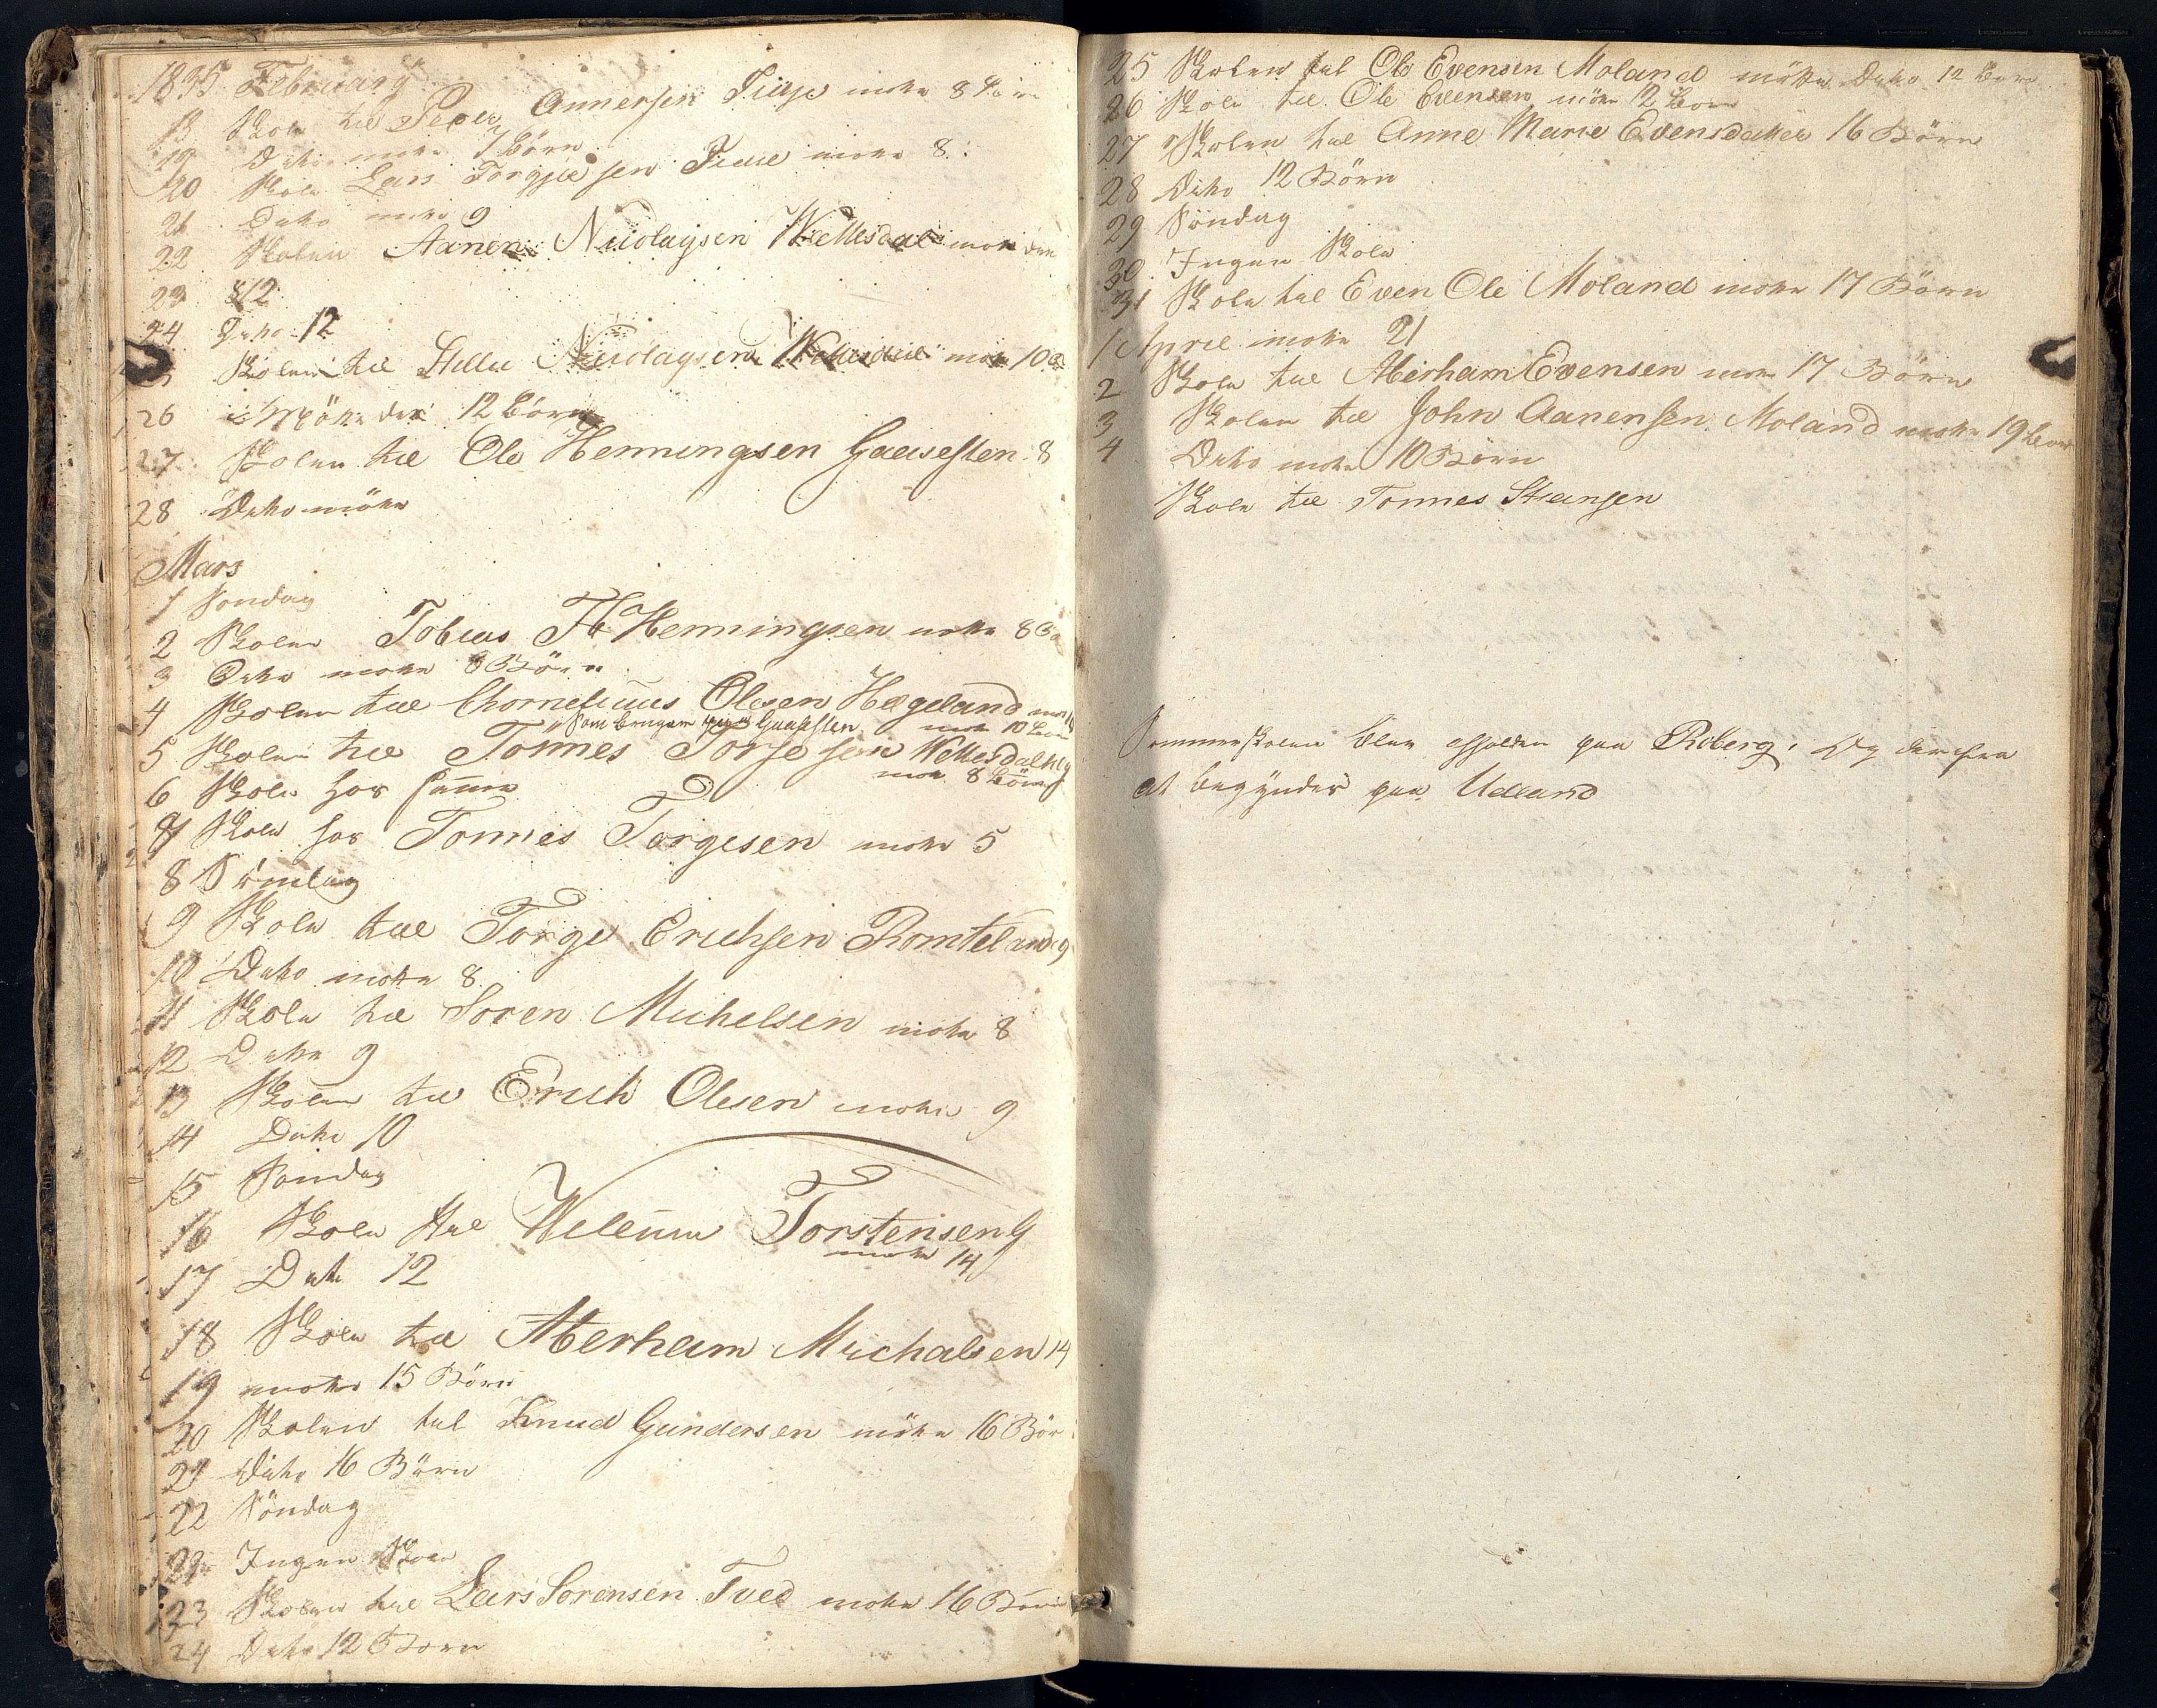 1835 February
18 Skole til Peder Annersen Tieje mötte 8
19 Dito mötte 7 Börn
20 Skole Lars Torgjesen Tieie mötte 8
21 Dito mötte 9
22 Skolen Aanen Nicolaysen Wettesdal mötte
23 12
24 Dito 12
Skolen til Nicolaysen Wettesdal mötte 10
26 mötte der 12 Börn
27 Skolen til Ole Henningsen 8
28 Dito mötte
Mars
1 Söndag
2 Skolen Tobias Henningsen mötte 8
3 Dito mötte 8 Börn
4 Skolen til Chornelius Olesen Hægeland
mötte 10 Börn
5 Skolen til Tönnes Torjesen Wettesdal
mötte 8 Börn
6 Skole hos samme
7 Skole hos Tönnes Torgesen mötte 5
8 Söndag
9 Skole til Torge Erichsen Romteland 9
10 Dito mötte 8
11 Skole til Soren Michelsen mötte 8
12 Dito 9
13 Skolen til Erich Olesen mötte 9
14 Dito 10
15 Söndag
16 Skole til Welem Torstensen
mötte 14
17 Dito 12
18 Skole til Aberham Michalsen 14
19 mötte 15 Börn
20 Skolen til Knud Gundersen mötte 16 Bör
21 Dito 16 Börn
22 Söndag
22 Ingen Skole
23 Skolen til Lars Sorensen Tved mötte 16 Börn
24 Dito 12 Börn
25 Skolen til Ole Evensen Moland mötte Dito 12 Börn
26 Skole til Ole Evensen mötte 12 Börn
27 Skolen til Anne Marie Evensdatter 16 Börn
28 Dito 12 Börn
29 Söndag
30 Ingen Skole
31 Skole til Even Ole Moland mötte 17 Börn
1 April mötte 21
2 Skole til Aberham Evensen mötte 17 Börn
3 Skolen til John Aanensen Moland mötte 19 Börn
4 Dito mötte 10 Börn
Skole til Tonnes Stiansen
Sommerskolen blev afholden paa Roberg, Og derefter
at begynder paa Udland